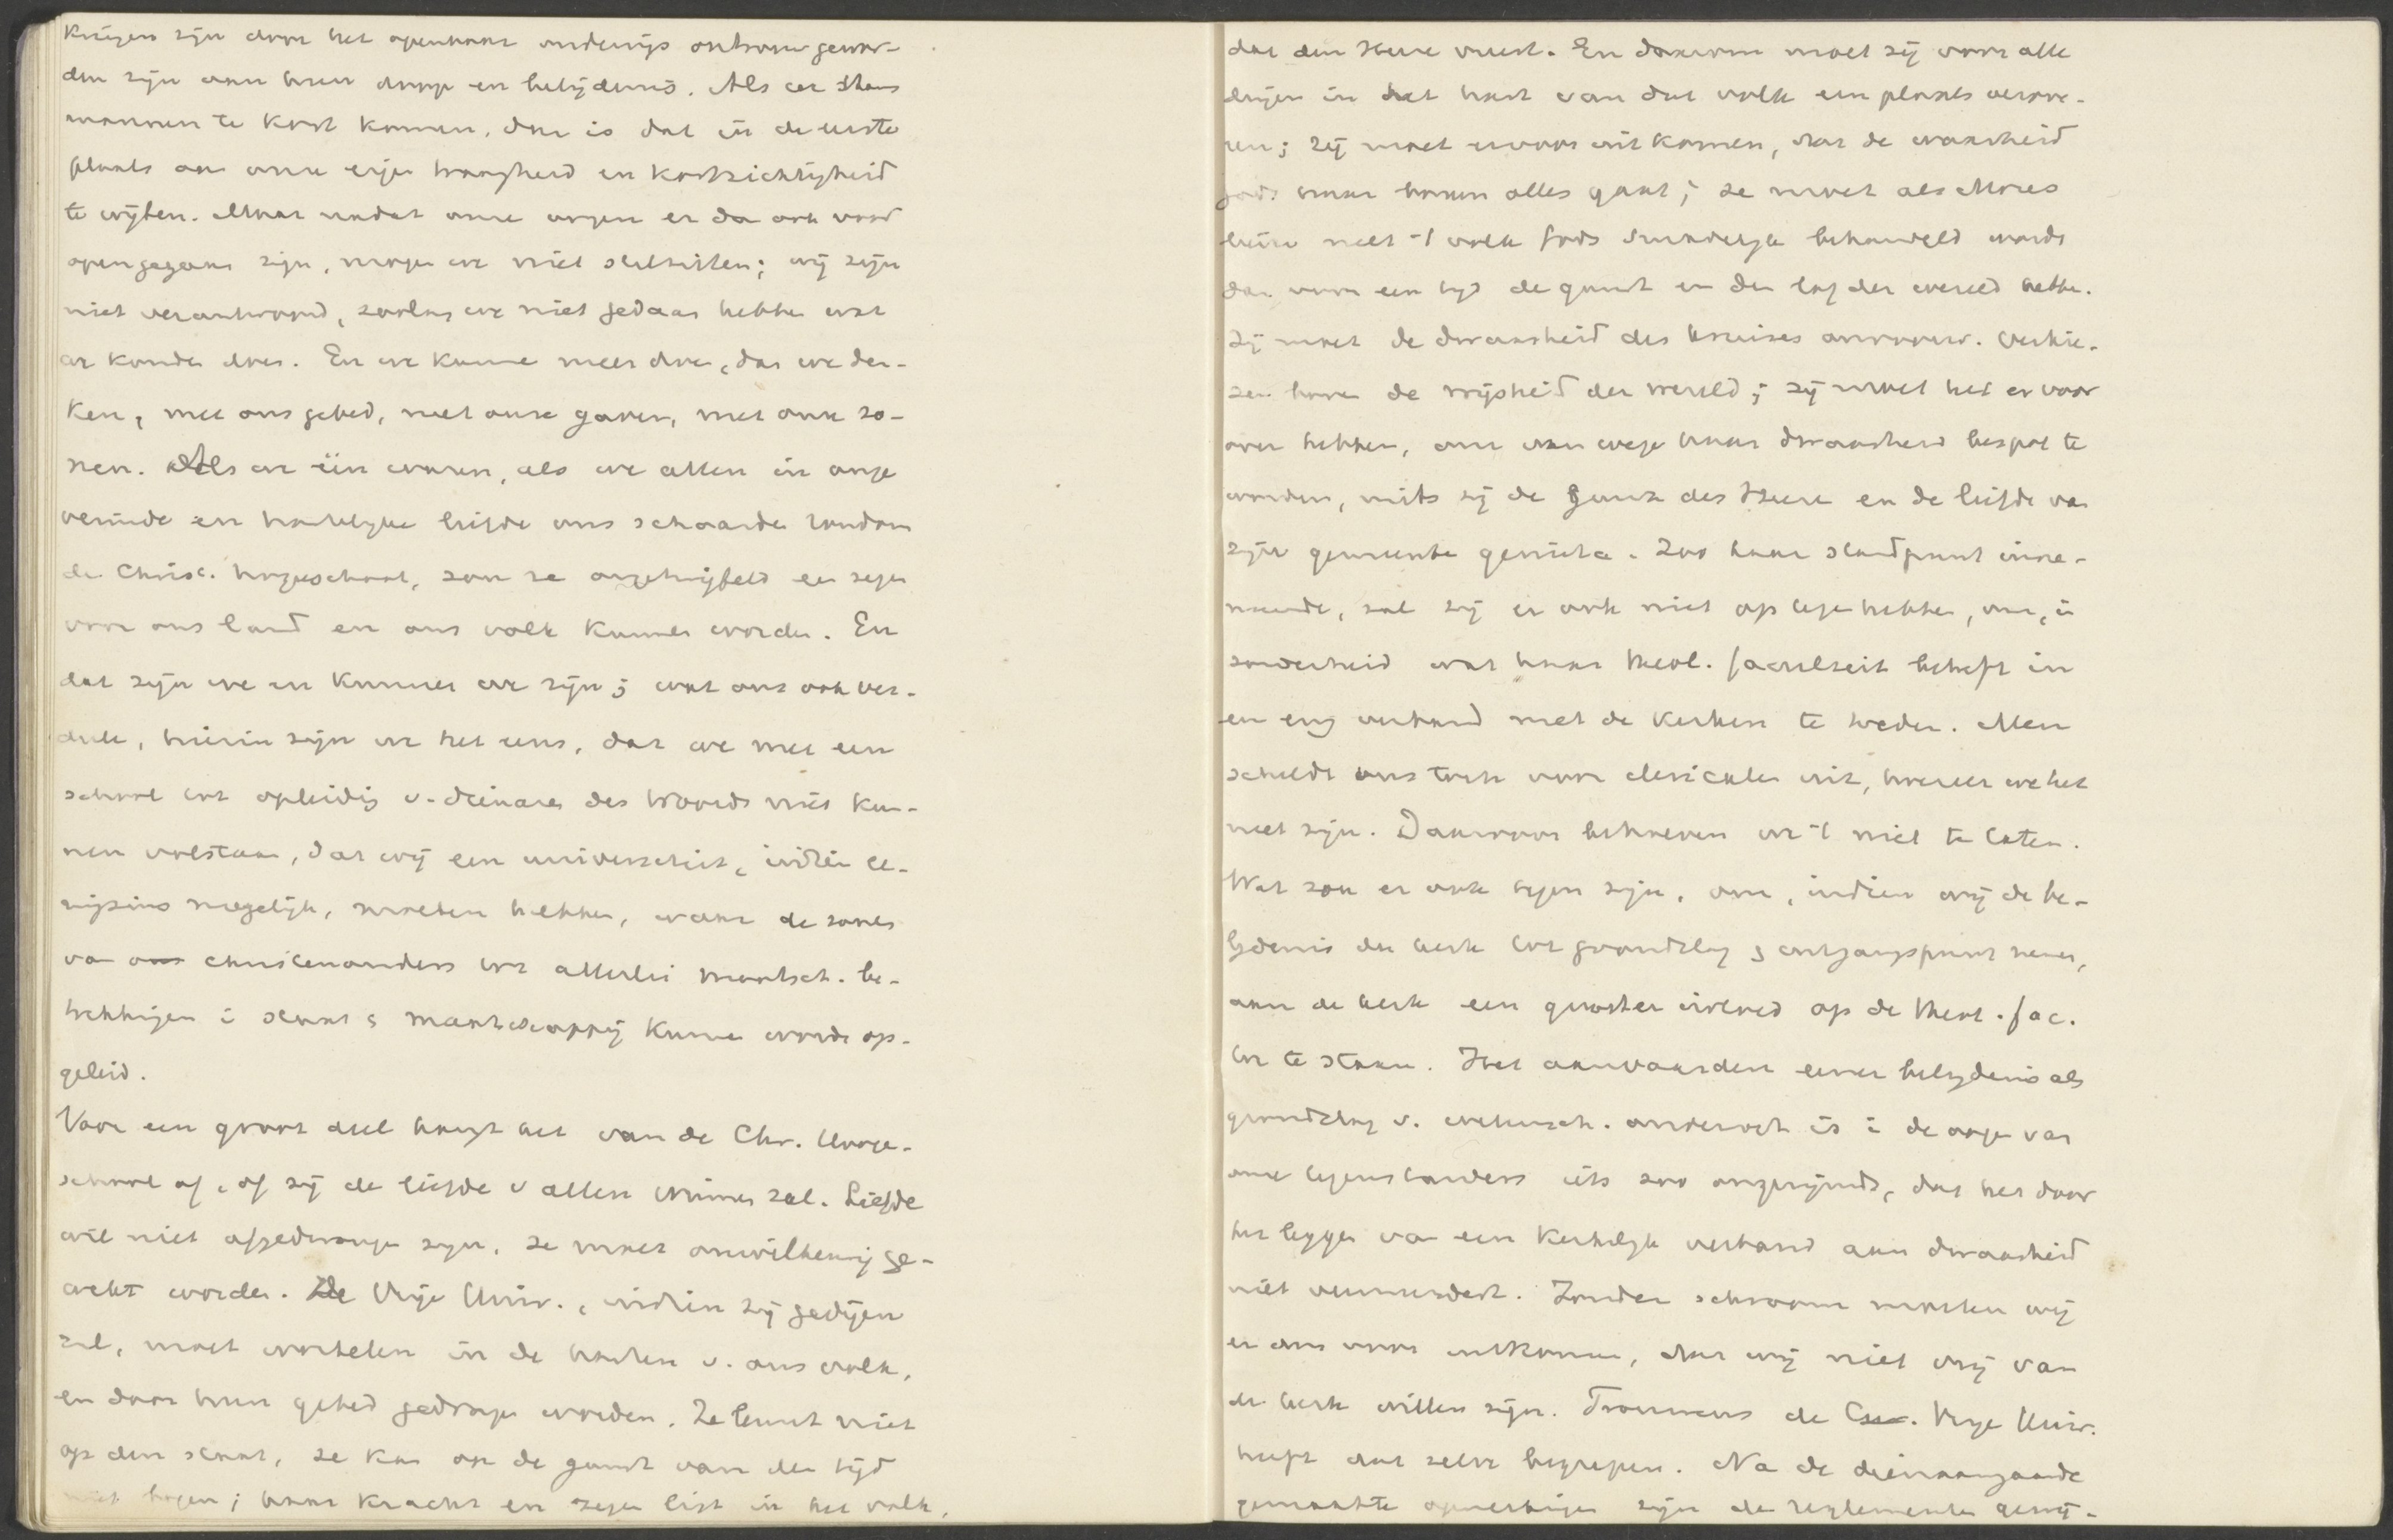 krijgen zijn door het openbaar onderwijs ontrouw gewor-
den zijn aan hun doop en belijdenis. Als er thans
mannen te kort komen, dan is dat in de eerste
plaats aan onze eigen traagheid en kortzichtigheid
te wijten. Maar nadat onze oogen er dan ook voor
opengegaan zijn, mogen we niet stilzitten; wij zijn
niet verantwoord, zoolang we niet gedaan hebben wat
we konden doen. En we kunnen meer doen, dan we den-
ken, met ons gebed, met onze gaven, met onze zo-
nen. Als we één waren, als we allen in onge
veinsde en hartelijke liefde ons schaarden rondom
de Christ. hoogeschool, zou ze ongetwijfeld een zegen
voor ons land en ons volk kunnen worden. En
dat zijn we en kunnen we zijn; wat ons ook ver-
deele, hierin zijn we het eens, dat we met een
school tot opleiding v. dienaren des Woords niet kun-
nen volstaan, dat wij een universiteit, indien ee-
nigzins mogelijk, moeten hebben, waar de zonen
van christenouders tot allerlei maatsch. be-
trekkingen in staat & maatschappij kunnen worden op-
geleid.
Voor een groot deel hangt het van de Chr. Hooge-
school af, of zij de liefde v allen winnen zal. Liefde
wil niet afgedwongen zijn, ze moet onwillekeurig ge-
wekt worden. De Vrije Univ., indien zij gedijen
zal, moet wortelen in de harten v. ons volk,
en door hun gebed gedragen worden. Ze leunt niet
op den staat, ze kan op de gunst van den tijd
niet bogen; haar kracht en zegen ligt in het volk,
dat den Heere vreest. En daarom moet zij voor alle
dingen in het hart van dat volk een plaats verove-
ren; zij moet ervoor uit komen, dat de waarheid
Gods haar boven alles gaat; ze moet als Mozes
liever met 't volk Gods smadelijk behandeld worden
dan voor een tijd de gunst en den lof der wereld hebben.
Zij moet de dwaasheid des kruises verkie-
zen boven de wijsheid der wereld; zij moet het er voor
over hebben, om van wege haar dwaasheid bespot te
worden, mits zij de gunst des Heeren en de liefde van
zijn gemeente geniete. Zoo haar standpunt inne-
mende, zal zij er ook niet op tegen hebben, om, in
zonderheid wat haar theol. faculteit betreft in
een eng verband met de kerken te treden. Men
scheldt ons toch voor clericalen uit, hoezeer we het
niet zijn. Daarvoor behoeven we 't niet te laten.
Wat zou er ook tegen zijn, om, indien wij de be-
lijdenis der kerk tot grondslag & uitgangspunt nemen,
aan de kerk een grooter invloed op de theol. fac.
toe te staan. Het aanvaarden eener belijdenis als
grondslag v. wetensch. onderzoek is in de oogen van
onze tegenstanders iets zoo ongerijmds, dat het door
het leggen van een kerkelijk verband aan dwaasheid
niet vermeerdert. Zonder schroom moeten wij
er dus voor uitkomen, dat wij niet vrij van
de kerk willen zijn. Trouwens de Vrije Univ.
heeft dat zelve begrepen. Na de dienaangaande
gemaakte opmerkingen zijn de reglementen gewij-